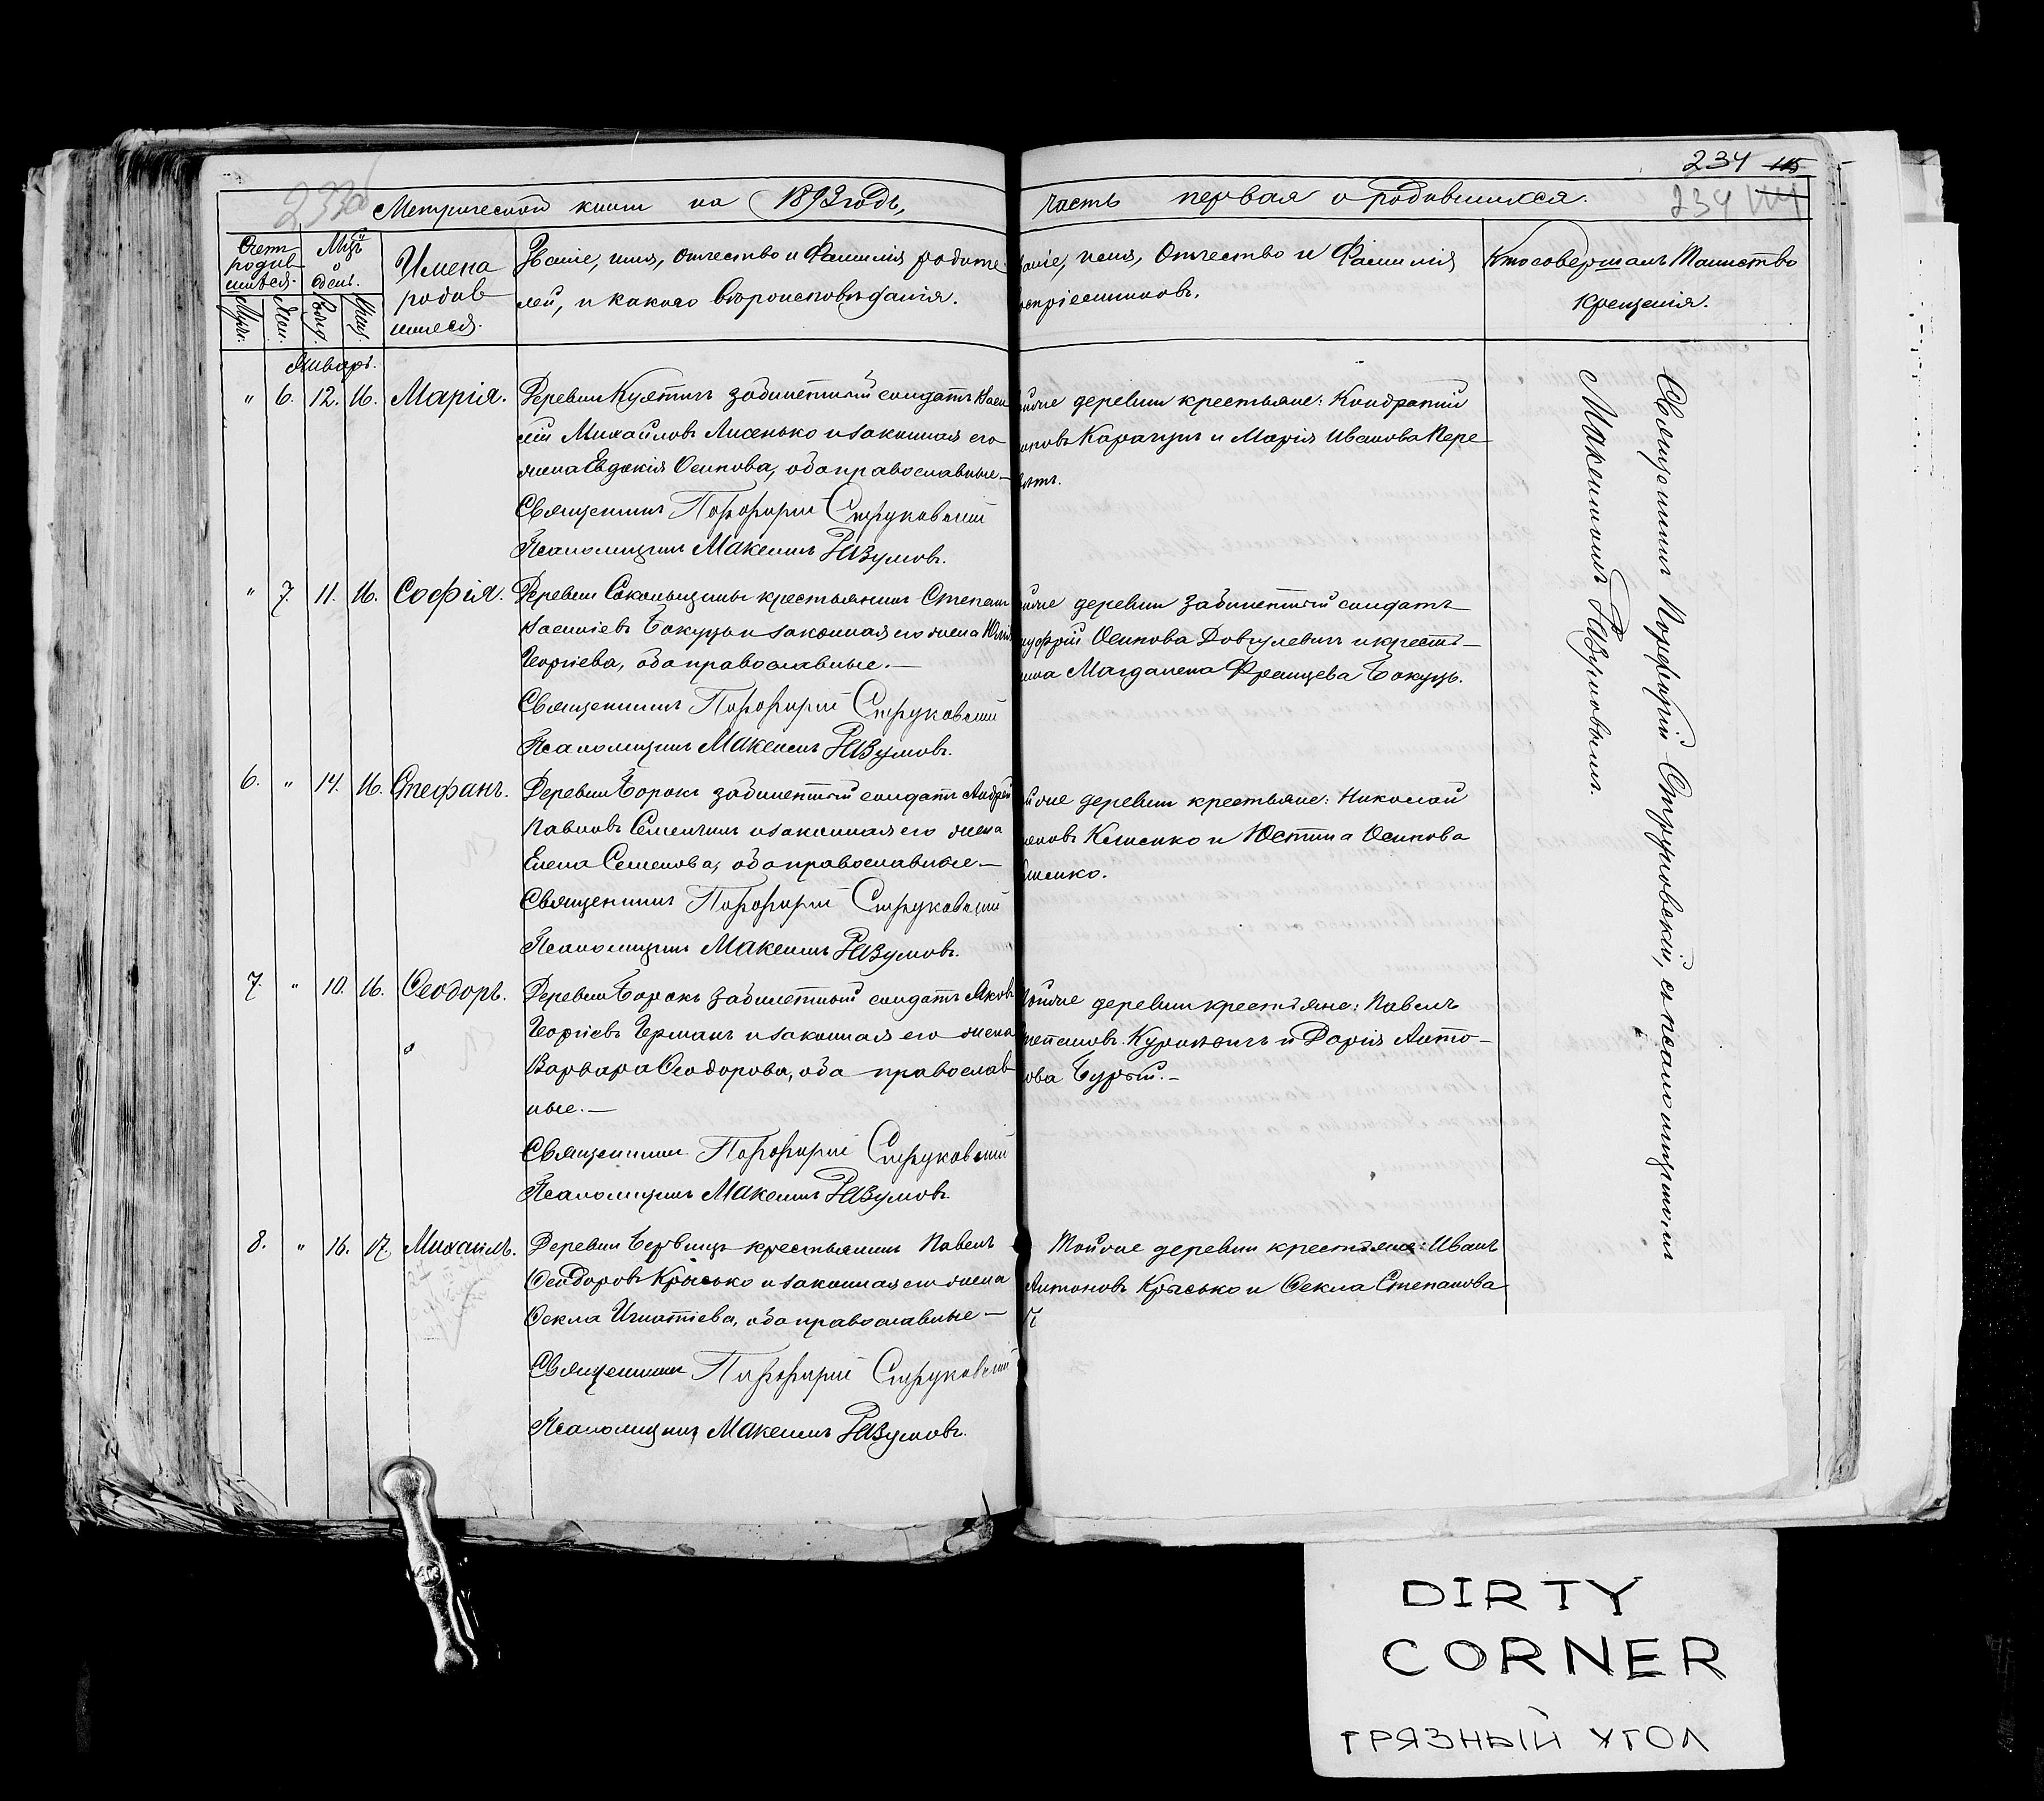 234 115
233об
234 114
Метрической книги на 1893 годъ,
часть первая о родившихся.
Счетъ родив-шихся.
Мцъ и день.
Муж.
Жен.
Рожд.
Крещ.
Имена родив-шихся.
Званіе, имя, отчество и Фамилія родите-
лей, и какого вѣроисповѣданія.
аніе, имя, Отчество и Фамилія
оспріемниковъ.
Кто совершалъ Таинство
крещенія.
Январь.
" 6. 12. 16. Марія.
Деревни забилетный солдатъ Васи
лій Михайловъ Лисенько и законная его
жена Евдокія Осипова, оба православные—
Священникъ Порфирій Струковскій
Псаломщикъ Максимъ Разумовъ.
ойже деревни крестьяне: Кондратій
иповъ Карачунъ и Марія Иванова Пере-
" 7. 11. 16. Софія.
Деревни Сокольщины крестьянинъ Степанъ
Василіевъ Бокуць и законная его жена Юлія
Георгіева, оба православные.—
Священникъ Порфирій Струковскій
Псаломщикъ Максимъ Разумовъ.
ойже деревни забилетный солдатъ
уфрій Осипова Довгулевичъ и кресть-
нка Магдалена Францева Бокуць.
6. " 14. 16. Стефанъ.
Деревни Борокъ забилетный солдатъ Андрей
Павловъ Семенчикъ и законная его жена
Елена Семенова, оба православные.—
Священникъ Порфирій Струковскій
Псаломщикъ Максимъ Разумовъ.
йже деревни крестьяне: Николай
Клисенко и Юстина Осипова
исенко.
7. " 10. 16. Ѳеодоръ.
Деревни Борокъ забилетный солдатъ Яковъ
Георгіевъ Германъ и законная его жена
Варвара Ѳеодорова, оба православ
ные.—
Священникъ Порфирій Струковскій
Псаломщикъ Максимъ Разумовъ.
ойже деревни крестьяне: Павелъ
тепановъ и Дарія Анто-
ова Бурый.—
8. " 16. 17. Михаилъ.
Деревни крестьянинъ Павелъ
Ѳеодоровъ Крысько и законная его жена
Ѳекла Игнатіева, оба православные—
Священникъ Порфирій Струковскій
Псаломщикъ Максимъ Разумовъ.
Тойже деревни крестьяне: Иванъ
Антоновъ Крысько и Ѳекла Степанова
Священникъ Порфирій Струковскій, съ псаломщикомъ
Максимомъ Разумовымъ.
DIRTY
CORNER
ГРЯЗНЫЙ УГОЛ